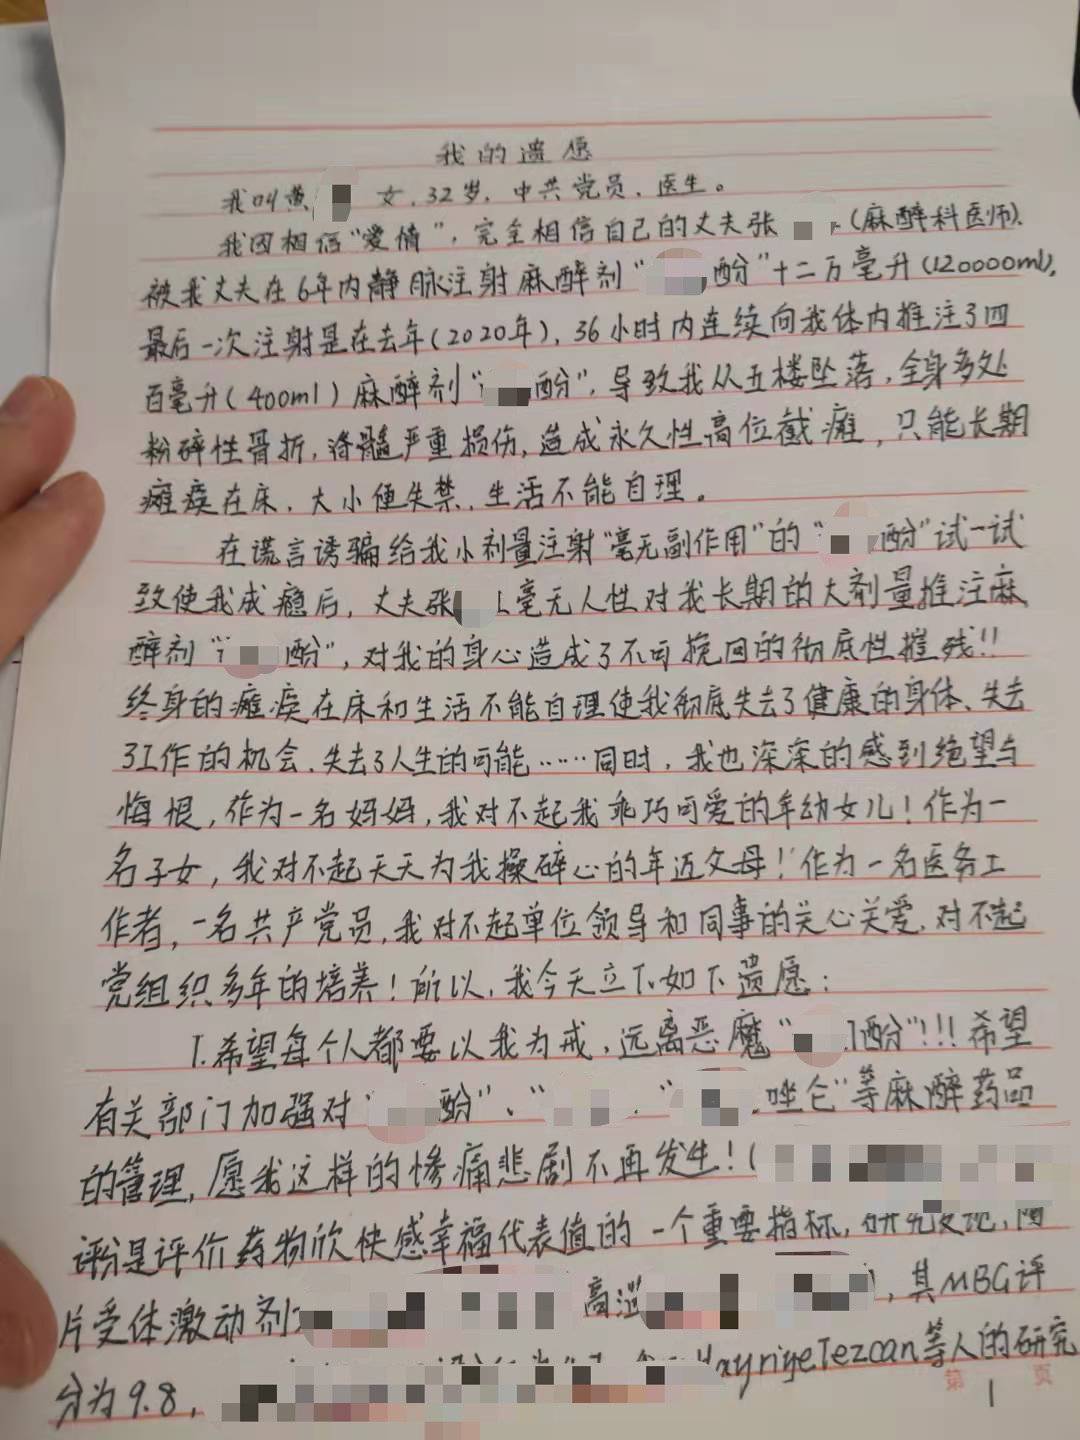 我的遗愿
我叫黄 女、32岁、中共党员、医生。
我因相信“爱情”，完全相信自己的丈夫张 （麻醉科医师）、
被我丈夫在6年内静脉注射麻醉剂“ 酚”十二万毫升（120000ml），
最后一次注射是在去年（2020年），36小时内连续向我体内推注了四
百毫升（400ml）麻醉剂“ 酚”，导致我从五楼坠落，全身多处
粉碎性骨折，脊髓严重损伤，造成永久性高位截瘫，只能长期
瘫痪在床、大小便失禁、生活不能自理。
在谎言诱骗给我小剂量注射“毫无副作用”的“ 酚”试一试
致使我成瘾后，丈夫张 毫无人性对我长期的大剂量推注麻
醉剂“ 酚”，对我的身心造成了不可挽回的彻底性摧残！！
终身的瘫痪在床和生活不能自理使我彻底失去了健康的身体、失去
了工作的机会、失去了人生的可能……同时，我也深深的感到绝望与
悔恨，作为一名妈妈，我对不起我乖巧可爱的年幼女儿！作为一
名子女，我对不起天天为我操碎心的年迈父母！作为一名医务工
作者，一名共产党员，我对不起单位领导和同事的关心关爱、对不起
党组织多年的培养！所以，我今天立下如下遗愿：
1.希望每个人都要以我为戒，远离恶魔“ 酚”！！！希望
有关部门加强对“ 酚”、“ “ 唑仑”等麻醉药品
的管理，愿我这样的惨痛悲剧不再发生！（
评分是评价药物欣快感幸福代表值的一个重要指标，研究发现，阿
片受体激动剂 高 ），其MBG评
分为9.8， Hayriye Tezcan等人的研究
第 1 页